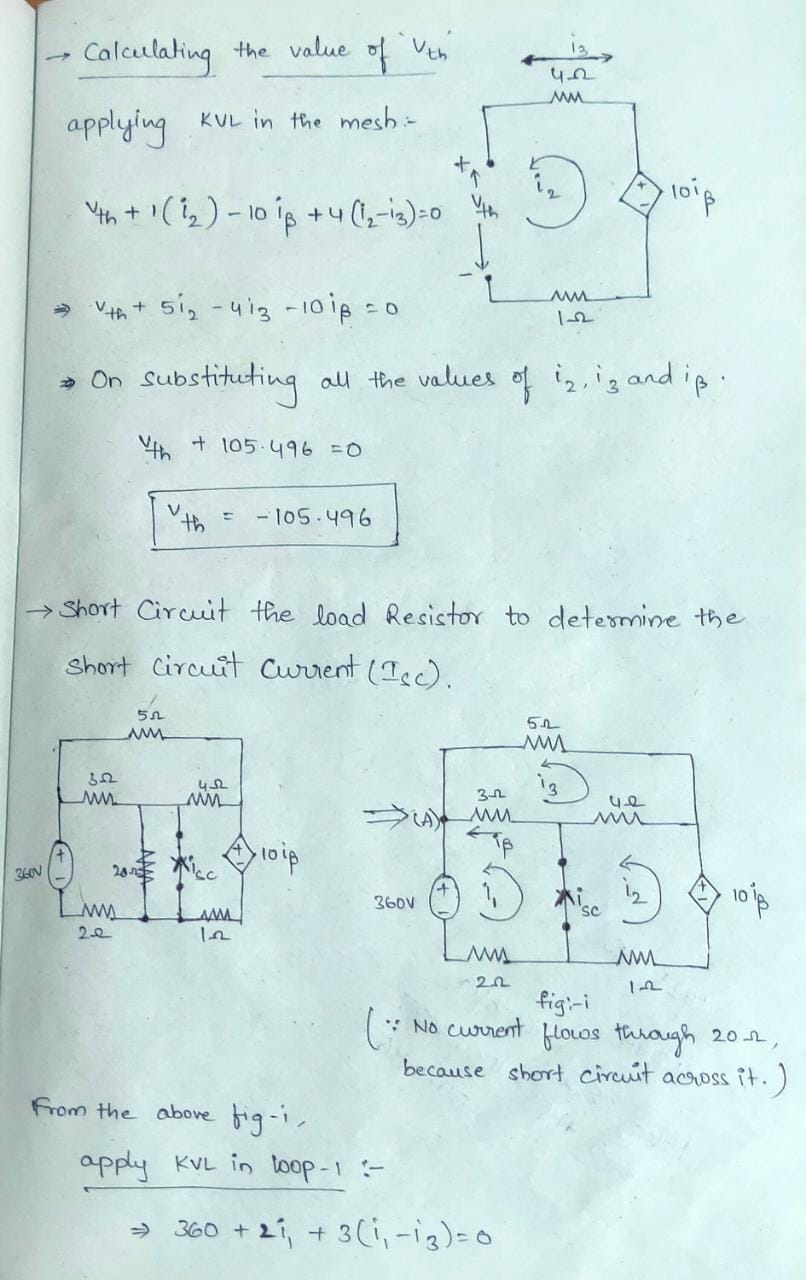 → Calculating the value of 'Vth'
applying KVL in the mesh :-
Vth + 1(i2) - 10 iβ + 4(i2-i3)=0
⇒ Vth + 5i2 - 4i3 - 10iβ = 0
i3
4Ω
+
Vth
-
i2
+
-
10iβ
1Ω
⇒ On substituting all the values of i2, i3 and iβ.
Vth + 105.496 = 0
Vth = -105.496
→ Short Circuit the load Resistor to determine the
Short Circuit Current (Isc).
5Ω
3Ω
4Ω
360V
+
-
20Ω
isc
+
-
10iβ
2Ω
1Ω
5Ω
i3
⇒ (A)
3Ω
4Ω
iβ
360V
+
-
i1
isc
i2
+
-
10iβ
2Ω
1Ω
fig:-i
(∵ No current flows through 20Ω,
because short circuit across it.)
From the above fig-i,
apply KVL in loop-1 :-
⇒ 360 + 2i1 + 3(i1-i3)=0